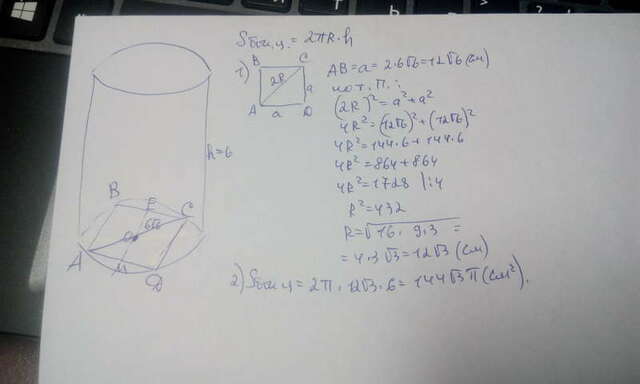 Sбок.ц. = 2πR·h
1) B C
2R a
A a D
AB = a = 2·6√6 = 12√6 (см)
по т. П.:
(2R)² = a² + a²
4R² = (12√6)² + (12√6)²
4R² = 144·6 + 144·6
4R² = 864 + 864
4R² = 1728 |:4
R² = 432
R = √16·9·3 =
= 4·3√3 = 12√3 (см)
2) Sбок.ц = 2π·12√3·6 = 144√3π (см²).
h = 6
B E C
O 6√6
A M D